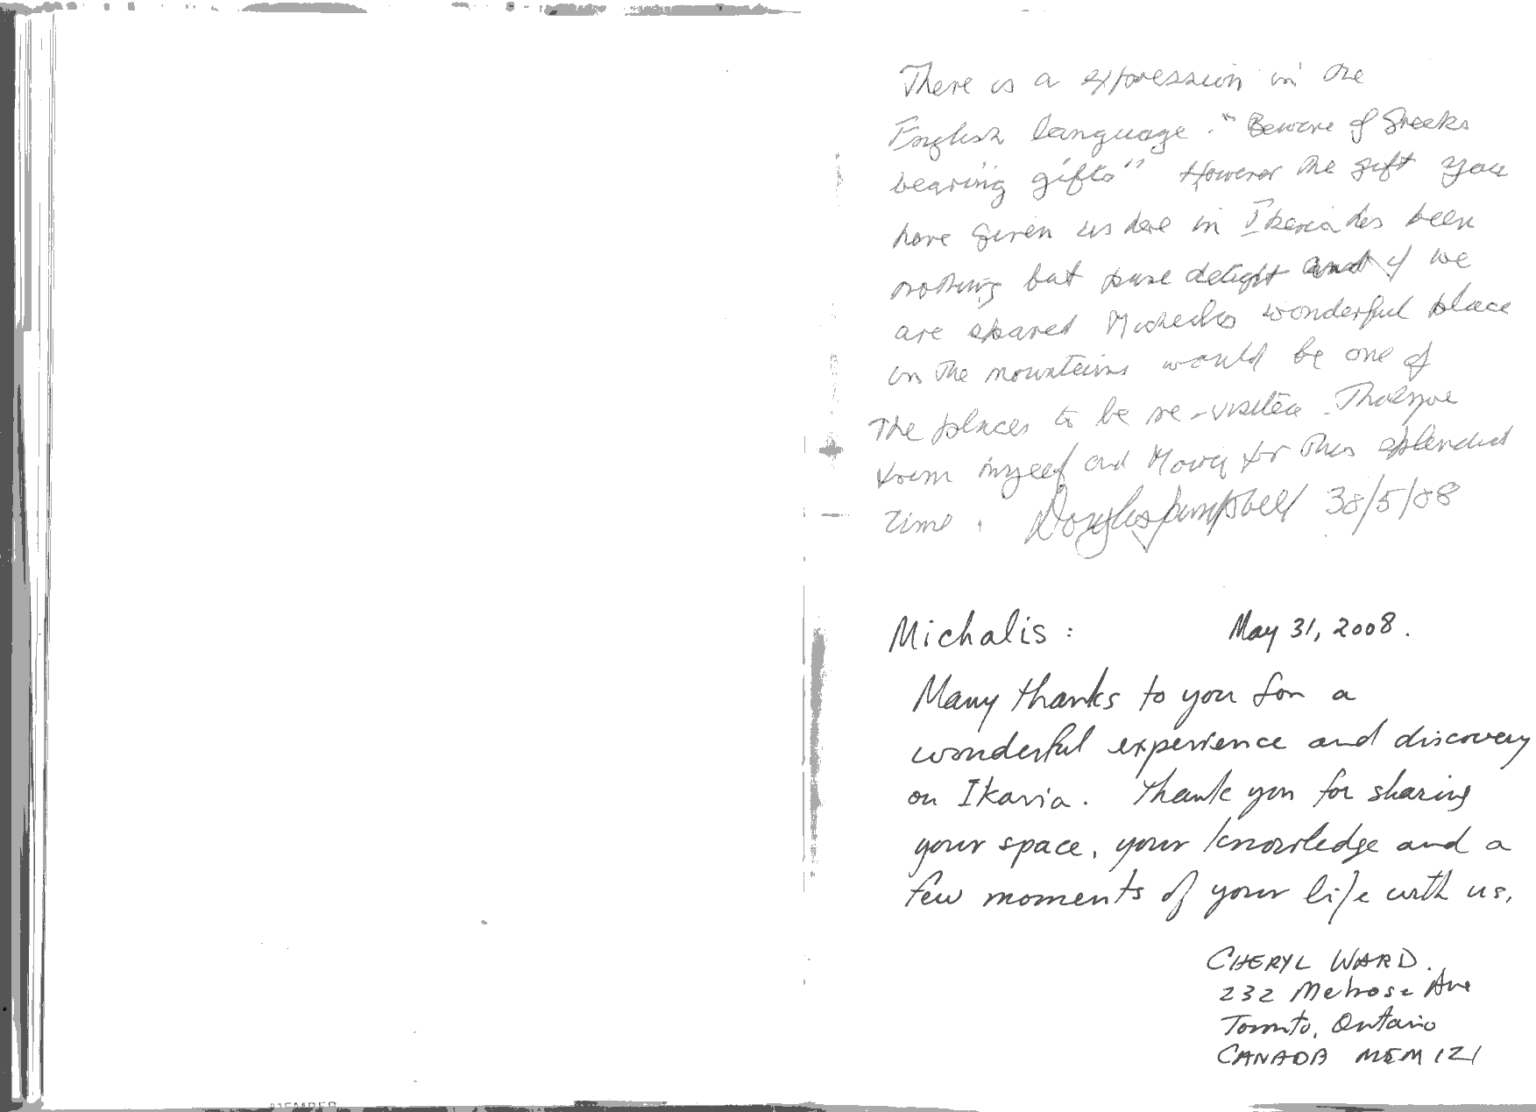 There is a expression in the
English language. "Beware of Greeks
bearing gifts" However the gift you
have given us here in Ikaria has been
nothing but pure delight and if we
are spared wonderful place
in the mountains would be one of
The places to be re-visited.
from myself and for this splendid
time. Douglas Campbell 30/5/08
Michalis: May 31, 2008.
Many thanks to you for a
wonderful experience and discovery
on Ikaria. Thank you for sharing
your space, your knowledge and a
few moments of your life with us.
CHERYL WARD.
232 Melrose Ave
Toronto, Ontario
CANADA M5M 1Z1